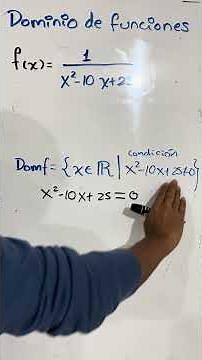 Dominio de funciones
f(x)= 1
x²-10x+25
condición
Domf={x∈ℝ | x²-10x+25≠0}
x²-10x+25=0